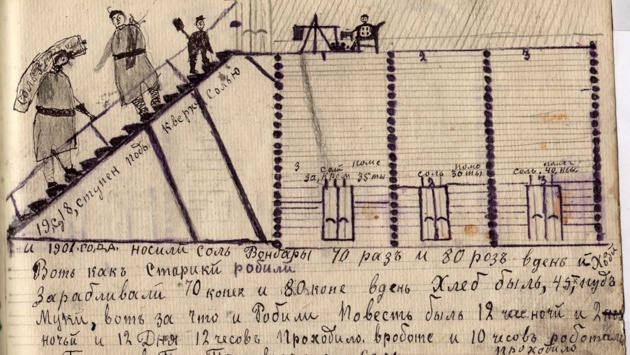 Соль
кверху Солью
19, 18, ступен подъ
1
2
3
3
соль помо
за, кром 35 ты
соль помо
30 ты
соль, 40,
и 1901. года. носили соль Вонбары 70 разъ и 80 розъ вдень и
Вотъ какъ Старики робили
Зарабливали 70 копек и 80 копе вдень Хлеб былъ, 45, пудъ
Муки, вотъ за что и Робили Повесть былъ 12 час ночи и 2
ночьи и 12 Дня 12 часовъ Проходило. вроботе и 10 часовъ роботали
проходило